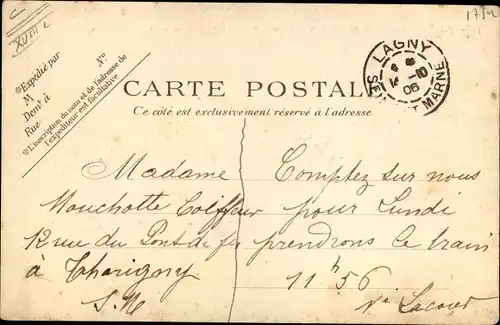 XVIII
17/12
*Expédié par
M
Demt à
Rue
N°
*L'inscription du nom et de l'adresse de
l'expéditeur est facultative
CARTE POSTALE
Ce côté est exclusivement réservé à l'adresse
LAGNY
10
06
SEINE ET MARNE
Madame
Mouchotte Coiffeur
12 rue du Pont de fer
à Thorigny
S. M
Comptez sur nous
pour Lundi
prendrons le train
11h56
Lacour